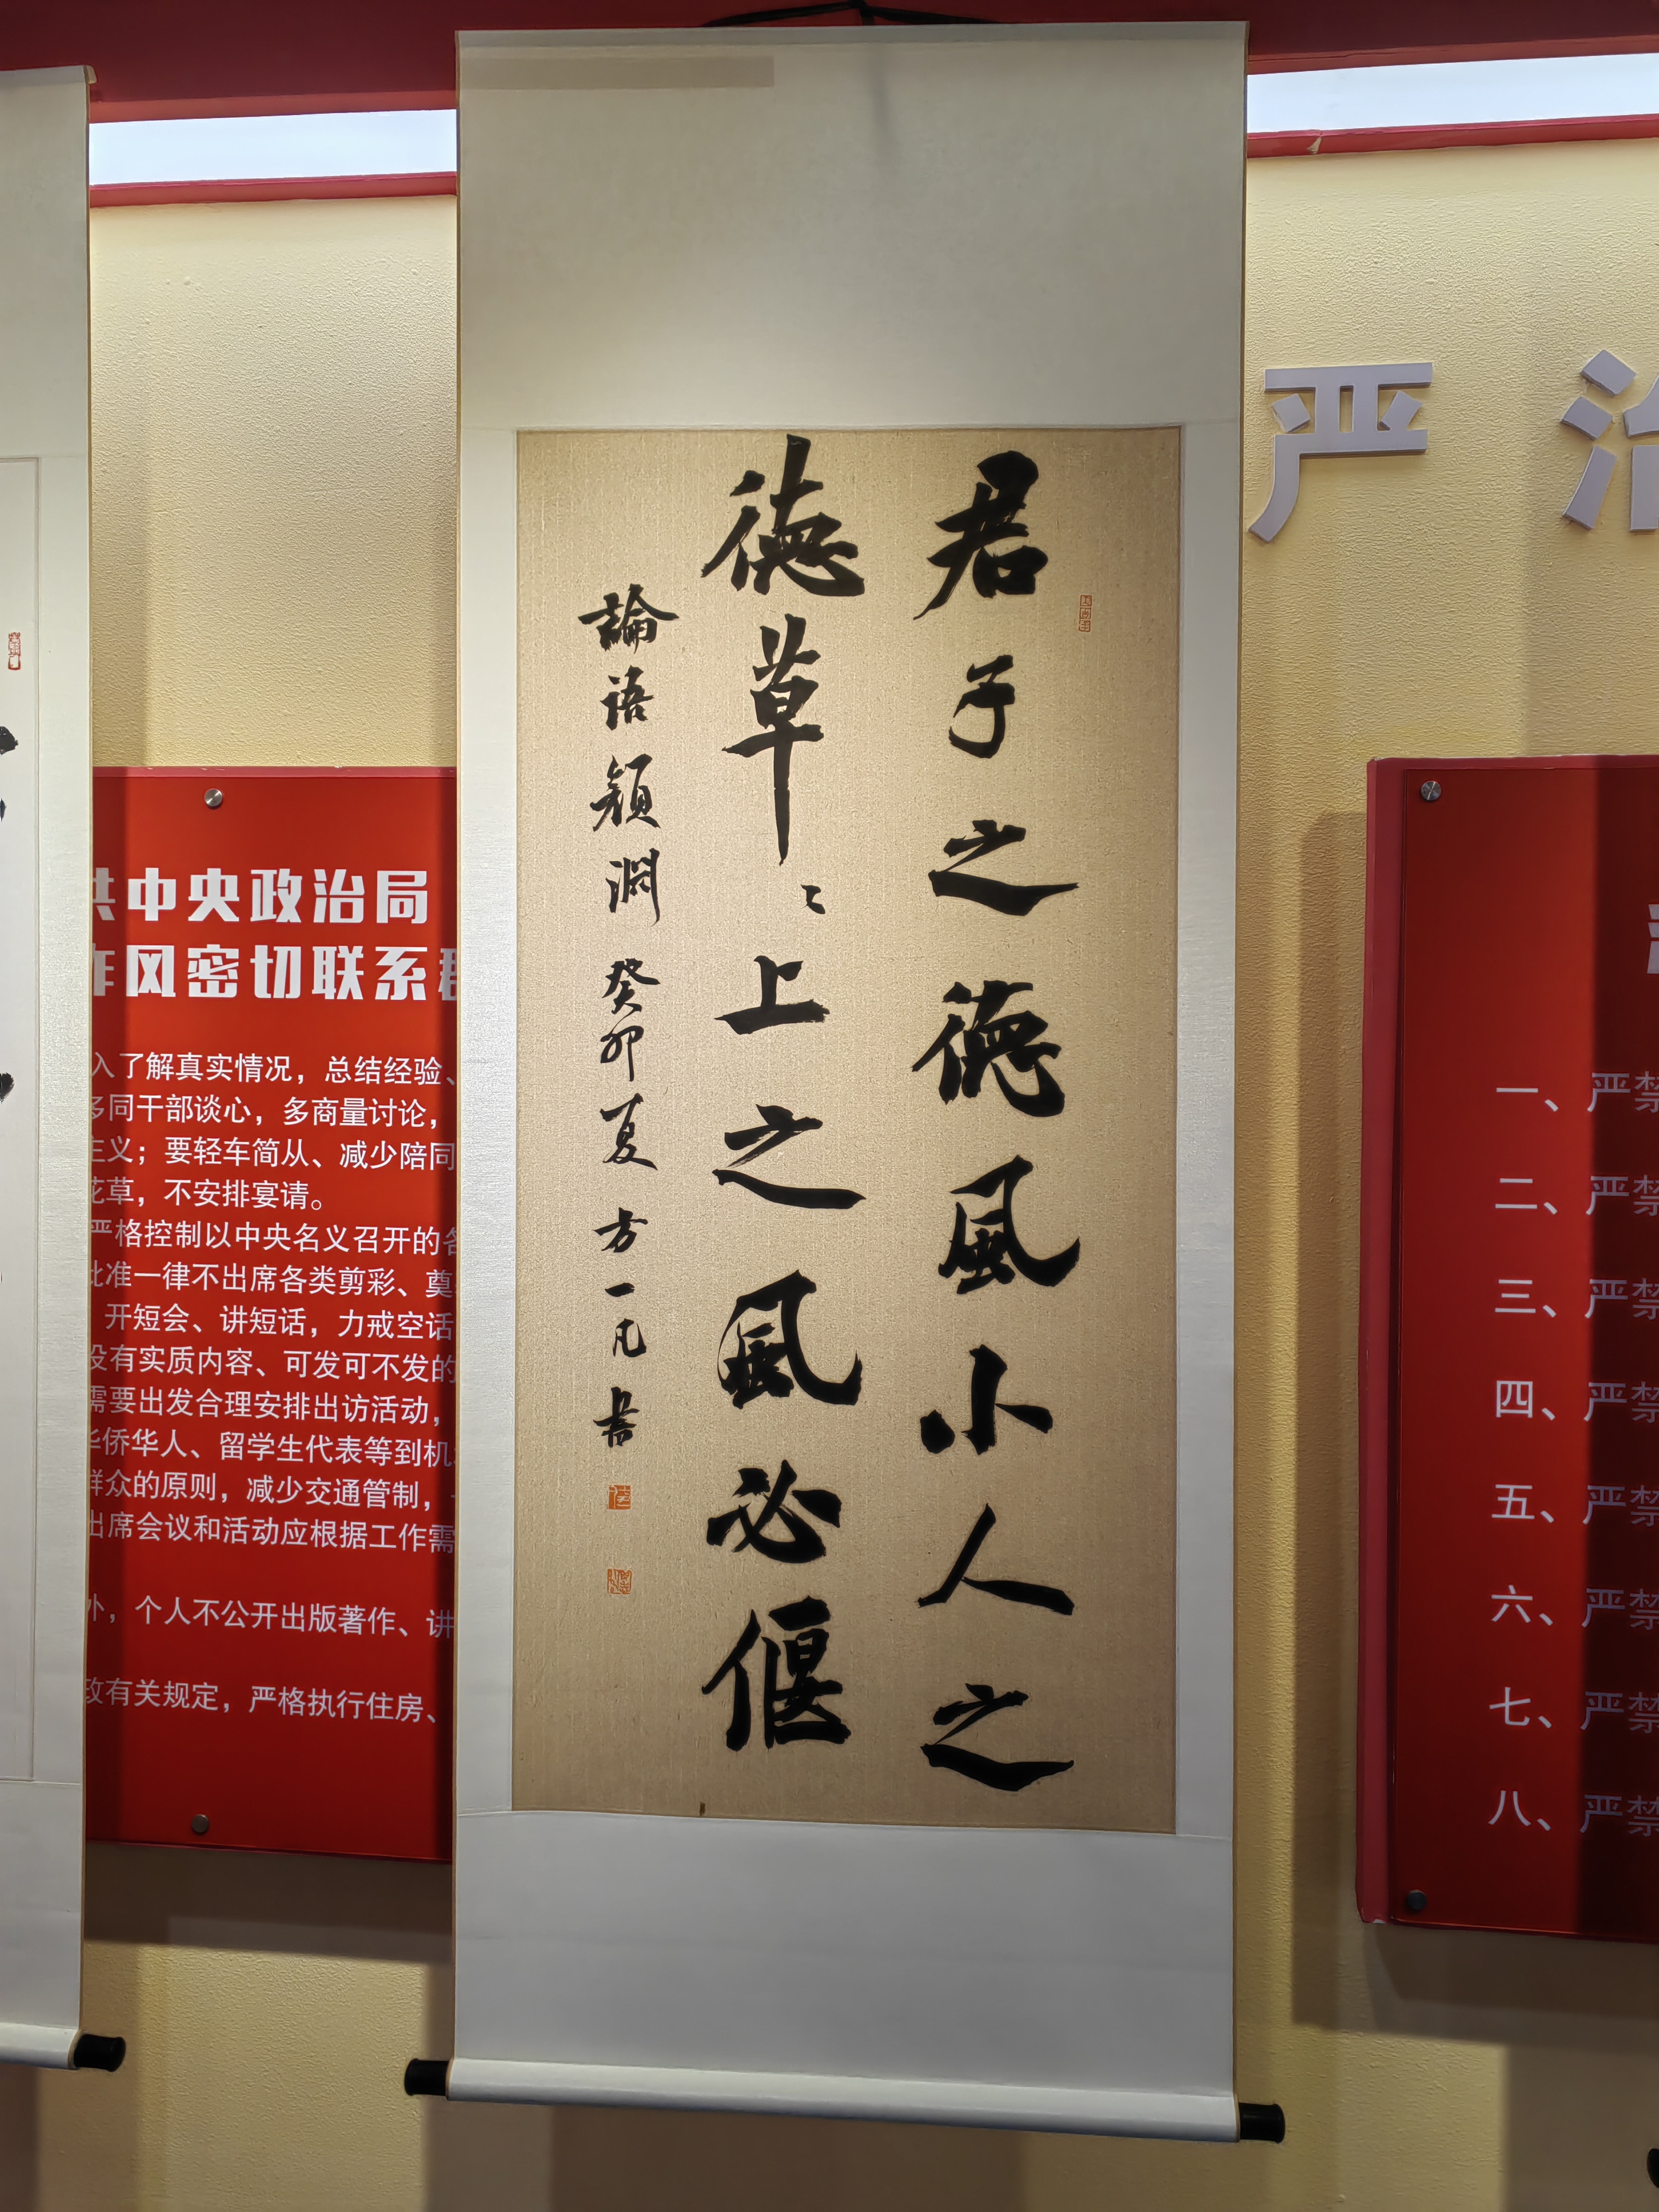 君子之德風小人之
德草〻上之風必偃
論語顏淵 癸卯夏 方一凡書
严 治
共中央政治局
作风密切联系群
入了解真实情况，总结经验、
多同干部谈心，多商量讨论，
主义；要轻车简从、减少陪同
花草，不安排宴请。
严格控制以中央名义召开的各
批准一律不出席各类剪彩、奠
开短会、讲短话，力戒空话
没有实质内容、可发可不发的
需要出发合理安排出访活动，
华侨华人、留学生代表等到机
群众的原则，减少交通管制，
出席会议和活动应根据工作需
外，个人不公开出版著作、讲
政有关规定，严格执行住房、
一、严禁
二、严禁
三、严禁
四、严禁
五、严禁
六、严禁
七、严禁
八、严禁